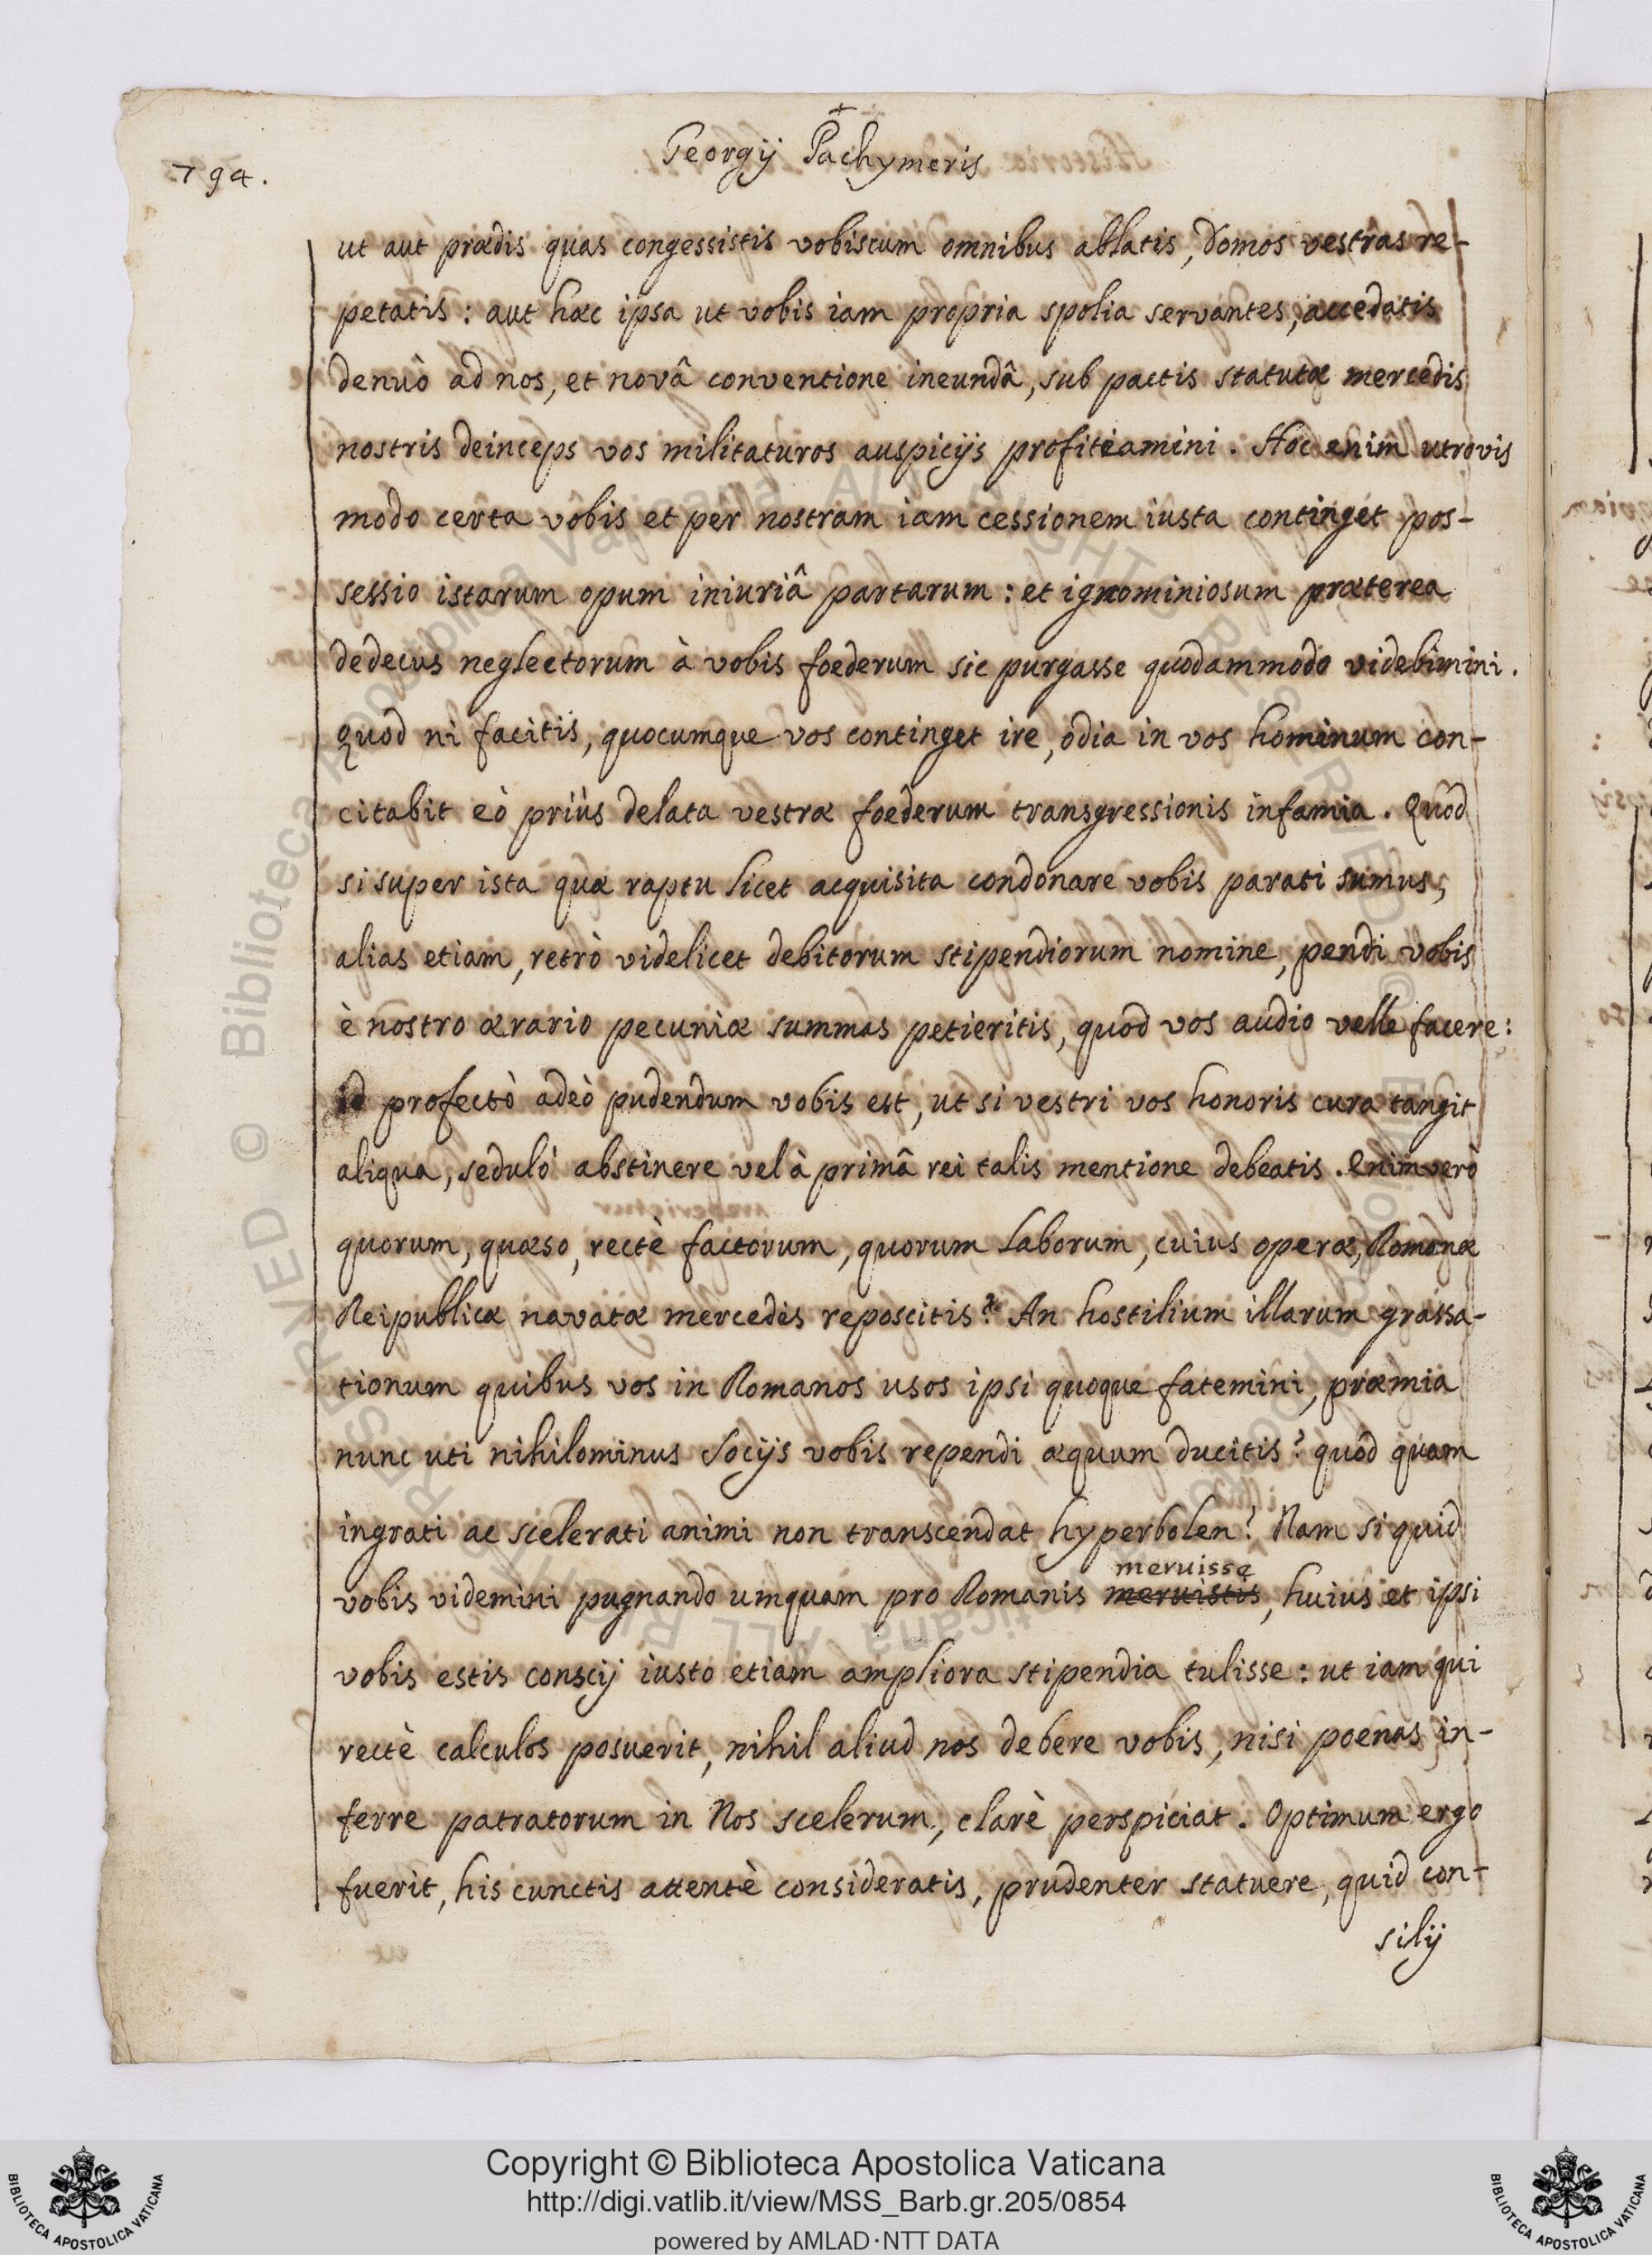 794.
Georgij Pachymeris
ut aut prædis quas congessistis vobiscum omnibus ablatis, domos vestras re-
petatis: aut hæc ipsa ut vobis iam propria spolia servantes, accedatis
denuò ad nos, et novâ conventione ineundâ, sub pactis statutæ mercedis
nostris deinceps vos militaturos auspicijs profiteamini. Hoc enim utrovis
modo certa vobis et per nostram iam cessionem iusta continget pos-
sessio istarum opum iniuriâ partarum: et ignominiosum præterea
dedecus neglectorum à vobis foederum sic purgasse quodammodo videbimini.
quod ni facitis, quocumque vos continget ire, odia in vos hominum con-
citabit eò priùs delata vestræ foederum transgressionis infamia. Quod
si super ista quæ raptu licet acquisita condonare vobis parati sumus,
alias etiam, retrò videlicet debitorum stipendiorum nomine, pendi vobis
è nostro ærario pecuniæ summas petieritis, quod vos audio velle facere:
id profectò adeò pudendum vobis est, ut si vestri vos honoris cura tangit
aliqua, sedulò abstinere vel à primâ rei talis mentione debeatis. Enimverò
quorum, quæso, rectè factorum, quorum laborum, cuius operæ, Romanæ
Reipublicæ navatæ mercedes reposcitis? An hostilium illarum grassa-
tionum quibus vos in Romanos usos ipsi quoque fatemini, præmia
nunc uti nihilominus Socijs vobis rependi æquum ducitis? quod quam
ingrati ac scelerati animi non transcendat hyperbolen? Nam si quid
meruisse
vobis videmini pugnando umquam pro Romanis meruistis, huius et ipsi
vobis estis conscij iusto etiam ampliora stipendia tulisse: ut iam qui
rectè calculos posuerit, nihil aliud nos debere vobis, nisi poenas in-
ferre patratorum in Nos scelerum, clarè perspiciat. Optimum ergo
fuerit, his cunctis attentè consideratis, prudenter statuere, quid con-
silij
Copyright © Biblioteca Apostolica Vaticana
http://digi.vatlib.it/view/MSS_Barb.gr.205/0854
powered by AMLAD·NTT DATA
BIBLIOTECA APOSTOLICA VATICANA
BIBLIOTECA APOSTOLICA VATICANA